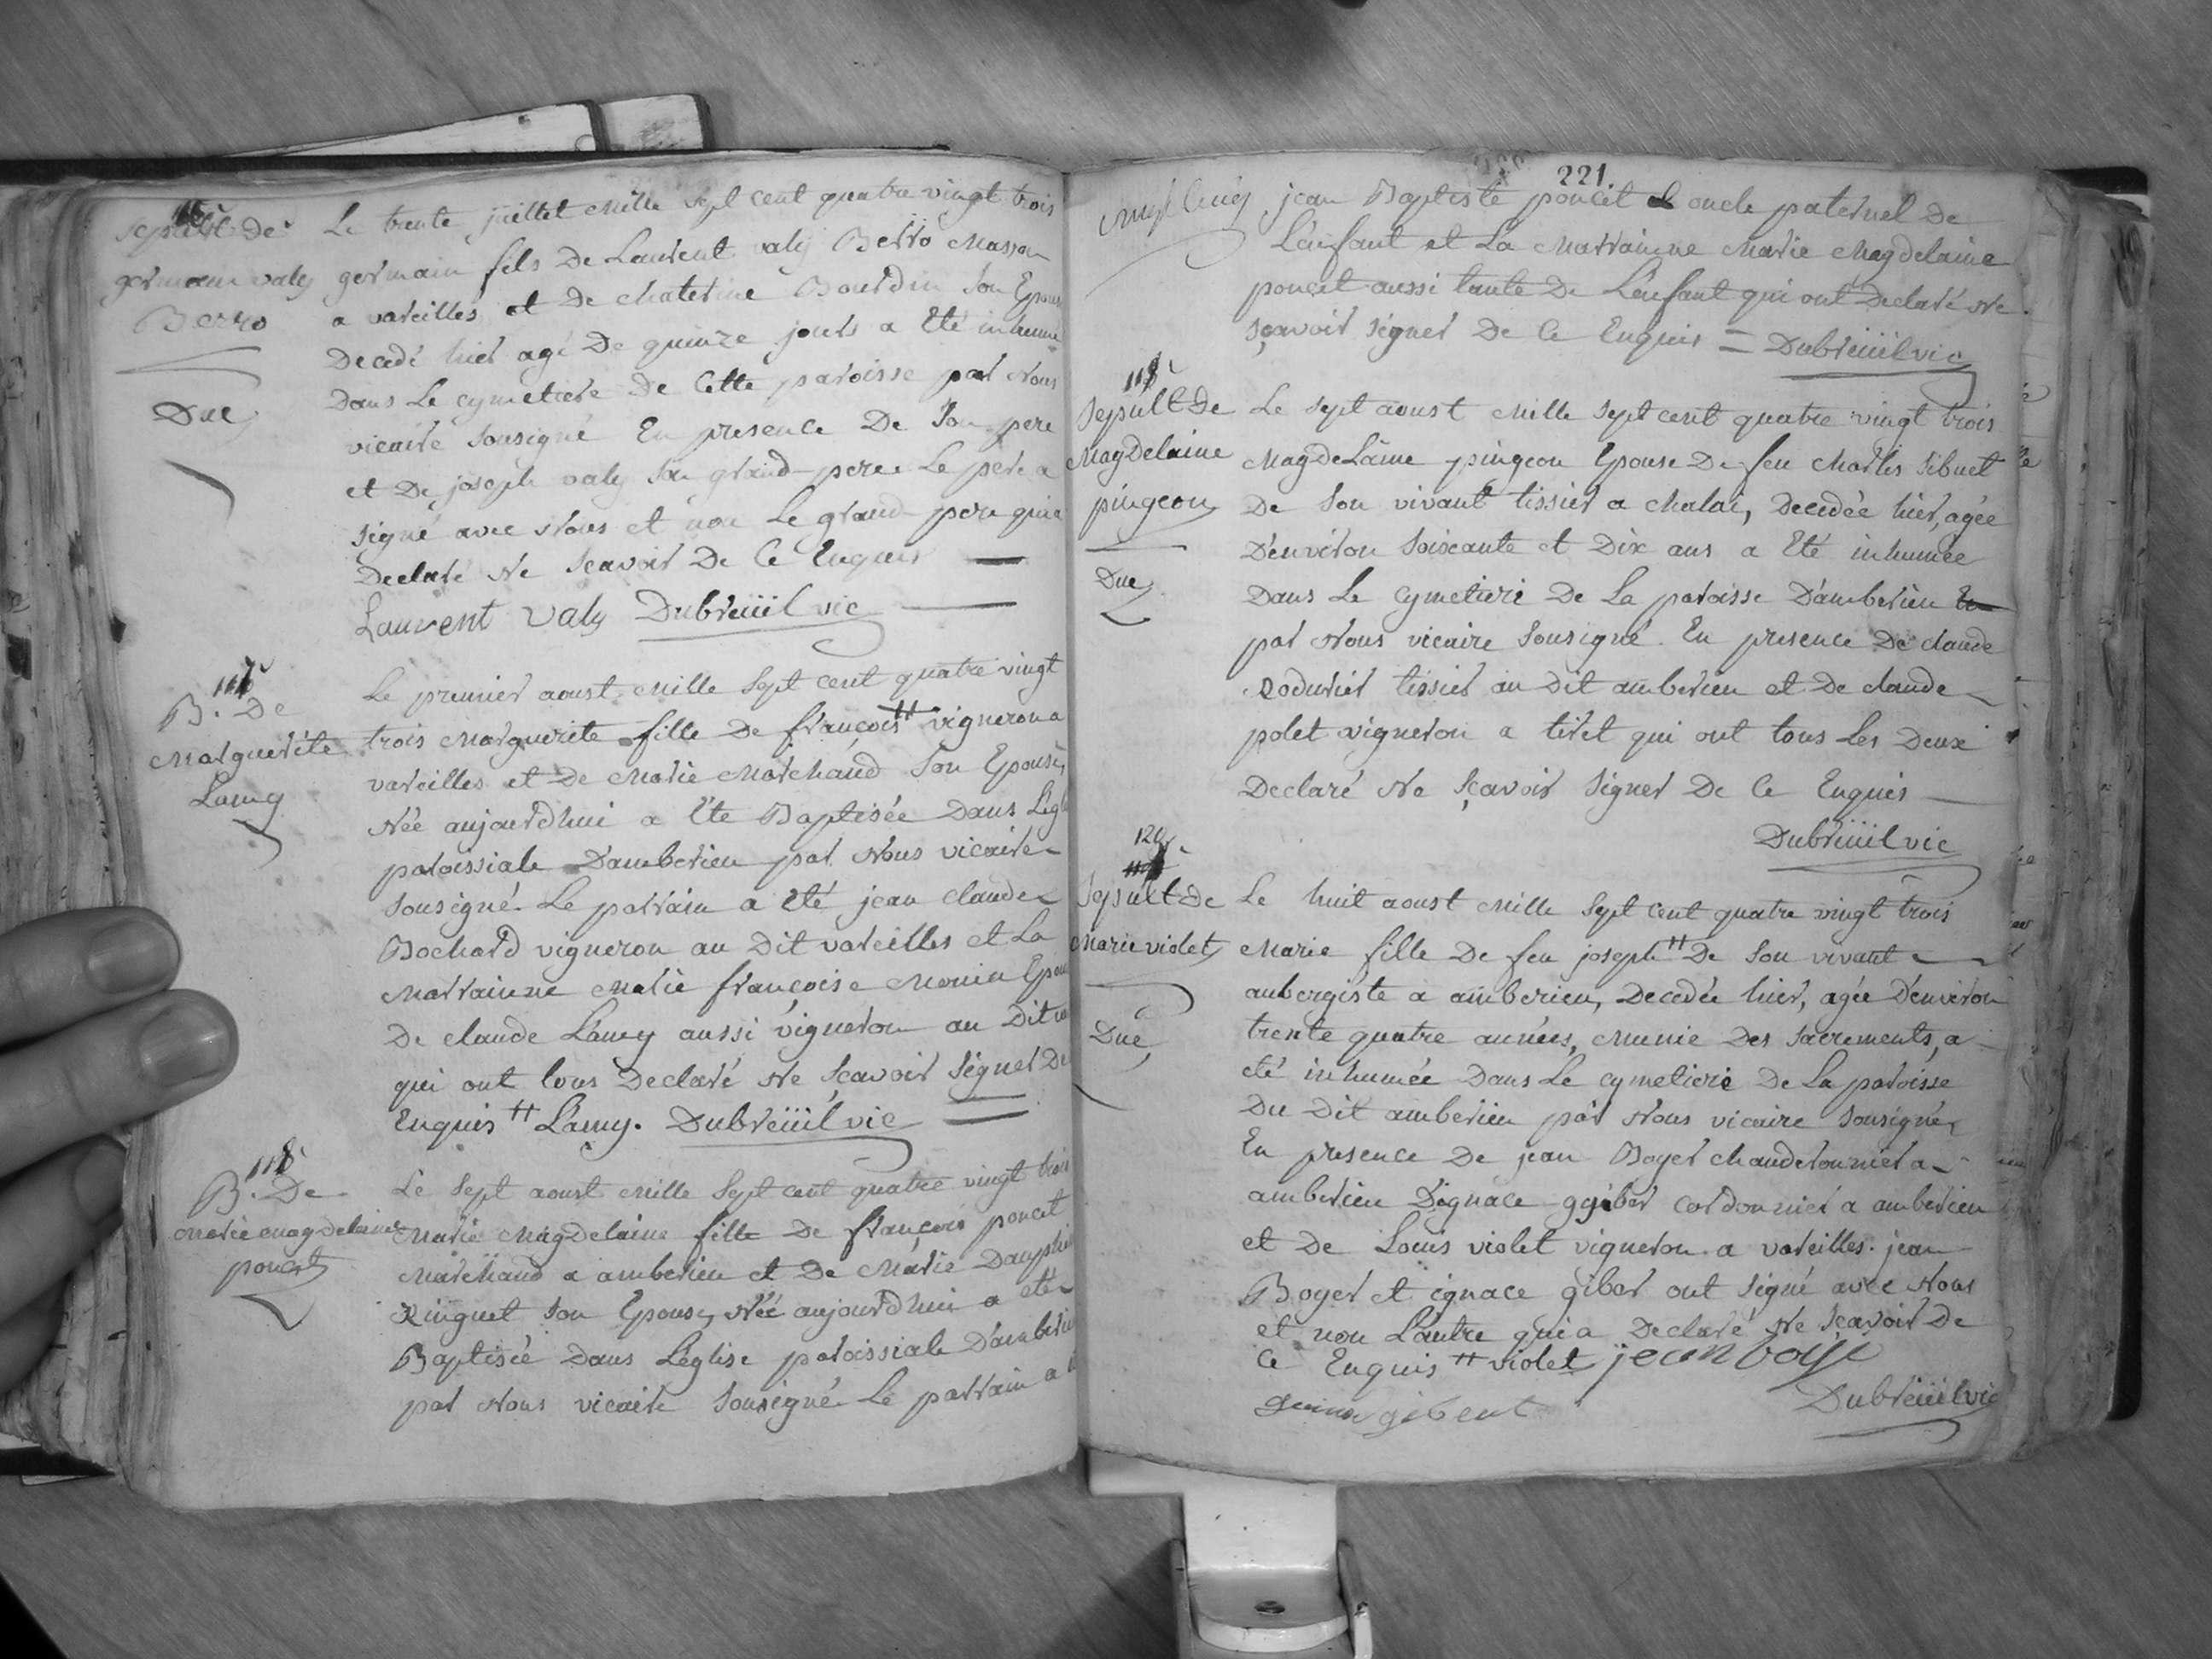 Sepult de
germain valy
Berro
Due
Le trente juillet mille sept cent quatre vingt trois
germain fils De Laurent valy Berro Masson
a vareilles et De chaterine Bourdin Son Epouse
Decedé hier agé De quinze jours a Eté inhumé
Dans Le cymetiere De Cette paroisse par Nous
vicaire Sousigné En presence De Son pere
et De joseph valy Son grand pere Le pere a
signé avec Nous et non Le grand pere qui a
Declaré Ne Scavoir De Ce Enquis
Laurent Valy Dubreüil vic
117
B. De
Marguerite
Lamy
Le premier aoust Mille Sept cent quatre vingt
trois Marguerite fille De françois # vigneron a
vareilles et De Marie Marchand Son Epouse,
Née aujourdhui a Eté Baptisée Dans L'egl
paroissiale D'amberieu par Nous vicaire
Sousigné. Le parrain a eté jean claude
Bochard vigneron au Dit vareilles et La
Marrainne Marie françoise Monin Epou
De claude Lamy aussi vigneron au Dit va
qui ont tous Declaré Ne Scavoir Signer De
Enquis # Lamy. Dubreüil vic
118
B. De
Marie Magdelaine
poncet
Le Sept aoust Mille Sept cent quatre vingt trois
Marie Magdelaine fille De françois poncet
Marchand a amberieu et De Marie Dauphi
Ringuet Son Epouse, Née aujourd'hui a eté
Baptisée Dans L'eglise paroissiale D'amberieu
par Nous vicaire Sousigné Le parrain a
221.
jean Baptiste poncet oncle paternel De
L'enfant et La Marrainne Marie Magdelaine
poncet aussi tante De L'enfant qui ont Declaré Ne
Sçavoir signer De Ce Enquis = Dubreüil vic
Sepult De
Magdelaine
pingeon
Due
Le Sept aoust Mille Sept cent quatre vingt trois
MagdeLaine pingeon Epouse De feu charles Sibuet
De Son vivant tissier a chalai, Decedée hier, agée
D'environ Soixante et Dix ans a Eté inhumée
Dans Le Cymetiere De La paroisse D'amberieu
par Nous vicaire Sousigné. En presence De claude
Rodurier tissier au Dit amberieu et De claude
polet vigneron a tiret qui ont tous Les Deux
Declaré Ne Sçavoir Signer De Ce Enquis
Dubreüil vic
120
Sepult De
Marie violet
Due
Le huit aoust Mille Sept cent quatre vingt trois
Marie fille De feu joseph # De Son vivant
aubergiste a amberieu, Decedée hier, agée D'environ
trente quatre années, Munie Des Sacrements, a
eté inhumée Dans Le cymetiere De La paroisse
Du Dit amberieu par Nous vicaire Sousigné,
En presence De jean Boyer chauderonnier a
amberieu D'ignace giber cordonnier a amberieu
et De Louis violet vigneron a vareilles. jean
Boyer et ignace giber ont signé avec Nous
et non L'autre qui a Declaré Ne Scavoir De
Ce Enquis # violet jean boye
gibert
Dubreüil vic